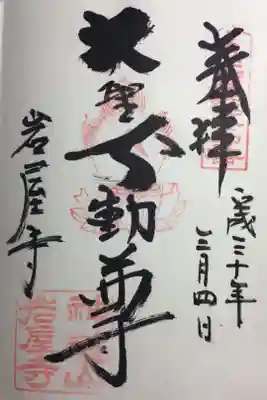 奉拝
平成三十年
三月四日
大聖不動尊
岩屋寺